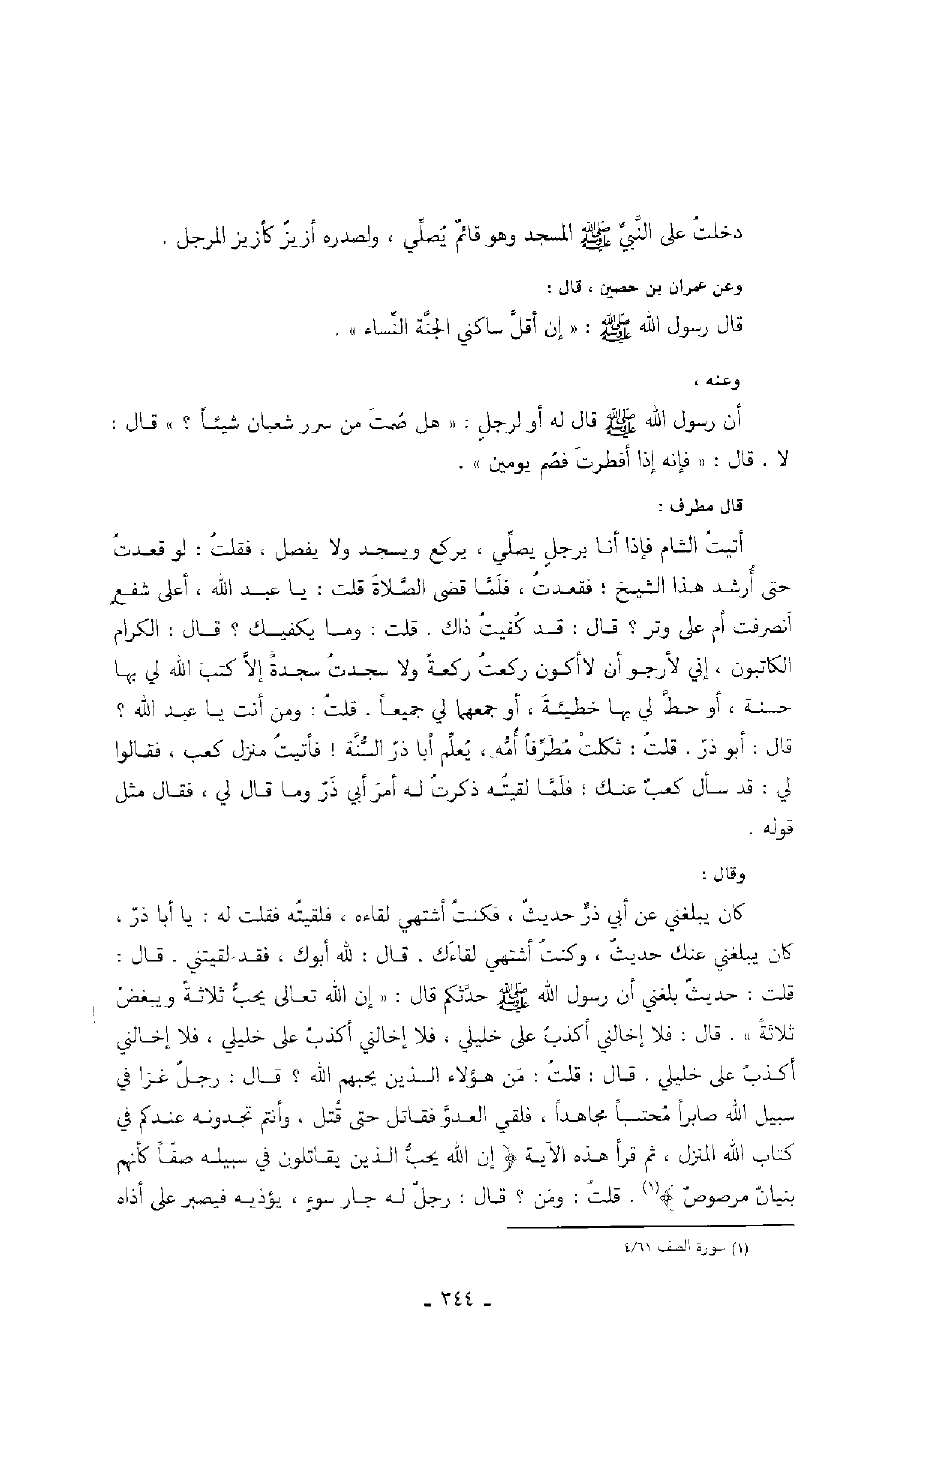 دخلتُ على النَّبيِّ ﷺ المسجد وهو قائمٌ يُصلِّي ، ولصدره أزيزٌ كأزيز المرجل .
وعن عمران بن حصين ، قال :
قال رسول الله ﷺ : « إن أقلَّ ساكني الجنَّة النِّساء » .
وعنه ،
أن رسول الله ﷺ قال له أو لرجلٍ : « هل صُمتَ من سرر شعبان شيئاً ؟ » قال :
لا . قال : « فإنه إذا أفطرتَ فصُم يومين » .
قال مطرف :
أتيتُ الشام فإذا أنا برجلٍ يصلِّي ، يركع ويسجد ولا يفصل ، فقلتُ : لو قعدتُ
حتى أُرشد هذا الشيخ ؛ فقعدتُ ، فلَمَّا قضى الصَّلاةَ قلت : يا عبد الله ، أعلى شفعٍ
أنصرفت أم على وتر ؟ قال : قد كُفيتُ ذاك . قلت : وما يكفيك ؟ قال : الكرام
الكاتبون ، إني لأرجو أن لاأكون ركعتُ ركعةً ولا سجدتُ سجدةً إلاَّ كتب الله لي بها
حسنة ، أو حطَّ لي بها خطيئةً ، أو جمعها لي جميعاً . قلتُ : ومن أنت يا عبد الله ؟
قال : أبو ذرّ . قلتُ : ثكلتْ مُطَرِّفاً أُمُّه ، يُعلِّم أبا ذرّ السُّنَّة ! فأتيتُ منزل كعب ، فقالوا
لي : قد سأل كعبٌ عنك ؛ فلَمَّا لقيتُه ذكرتُ له أمرَ أبي ذَرّ وما قال لي ، فقال مثل
قوله .
وقال :
كان يبلغني عن أبي ذرٍّ حديثٌ ، فكنتُ أشتهي لقاءه ، فلقيتُه فقلت له : يا أبا ذرّ ،
كان يبلغني عنك حديثٌ ، وكنتُ أشتهي لقاءَك . قال : لله أبوك ، فقد لقيتني . قال :
قلت : حديثٌ بلغني أن رسول الله ﷺ حدَّثكم قال : « إن الله تعالى يحبُّ ثلاثةً ويبغضُ
ثلاثةً » . قال : فلا إخالني أكذبُ على خليلي ، فلا إخالني أكذبُ على خليلي ، فلا إخالني
أكذبُ على خليلي . قال : قلتُ : مَن هؤلاء الذين يحبهم الله ؟ قال : رجلٌ غزا في
سبيل الله صابراً مُحتسباً مجاهداً ، فلقي العدوَّ فقاتل حتى قُتل ، وأنتم تجدونه عندكم في
كتاب الله المنزل ، ثم قرأ هذه الآية ﴿ إن الله يحبُّ الذين يقاتلون في سبيله صفّاً كأنهم
بنيانٌ مرصوصٌ ﴾(١) . قلتُ : ومَن ؟ قال : رجلٌ له جار سوءٍ ، يؤذيه فيصبر على أذاه
(١) سورة الصف ٤/٦١
ـ ٣٤٤ ـ